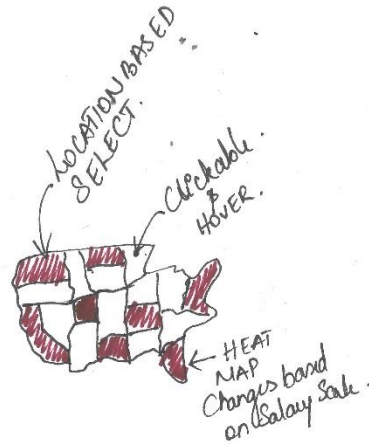 LOCATION BASED
SELECT.
Clickable.
&
HOVER.
HEAT
MAP
Changes based
on Salary Scale.